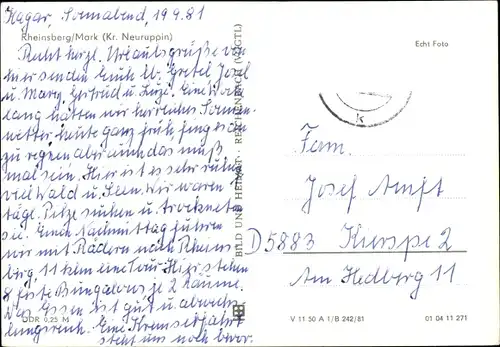 Kagar, Sonnabend, 19.9.81
Rheinsberg/Mark (Kr. Neuruppin)
Recht herzl. Urlaubsgrüße von
hier senden Euch lb. Gretel, Josef
u. Mary, Gertrud u. Luzie. Eine Woche
lang hatten wir herrliches Sonnen-
wetter heute ganz früh fing es an
zu regnen aber auch das muß
mal sein. Hier ist es sehr ruhig
viel Wald u. Seen. Wir waren
tägl. Pilze suchen u. trocknete
sie. Einen Nachmittag fuhren
wir mit Rädern nach Rheins-
berg, 11 klm eine Tour. Hier stehen
8 feste Bungalows je 2 Räume.
Das Essen ist gut u. abwechs-
lungsreich. Eine Kremserfahrt
steht uns noch bevor.
DDR 0,25 M
BILD UND HEIMAT · REICHENBACH (VOGTL)
Echt Foto
k
Fam.
Josef
D 5883 Kierspe 2
Am Hedberg 11
V 11 50 A 1/B 242/81 01 04 11 271